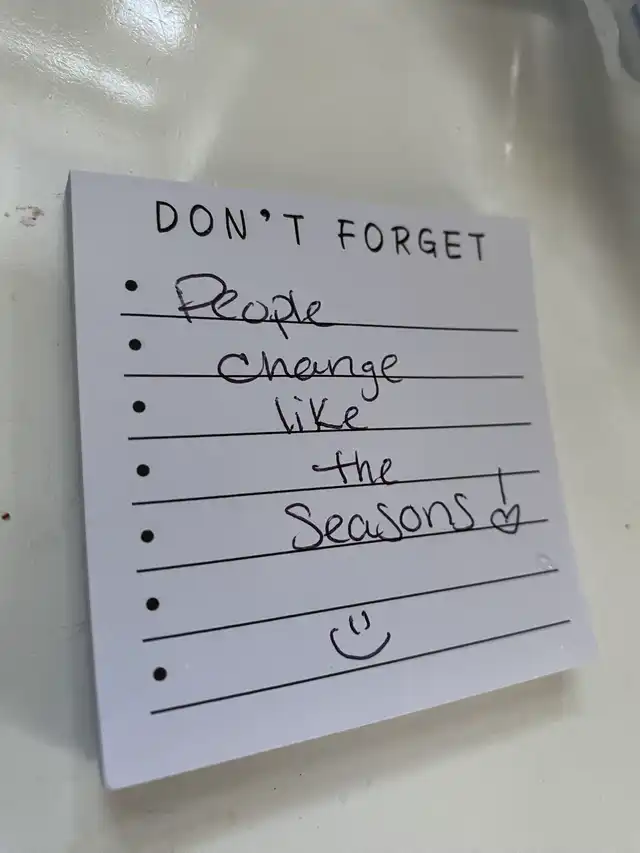 DON'T FORGET
People
change
like
the
Seasons!